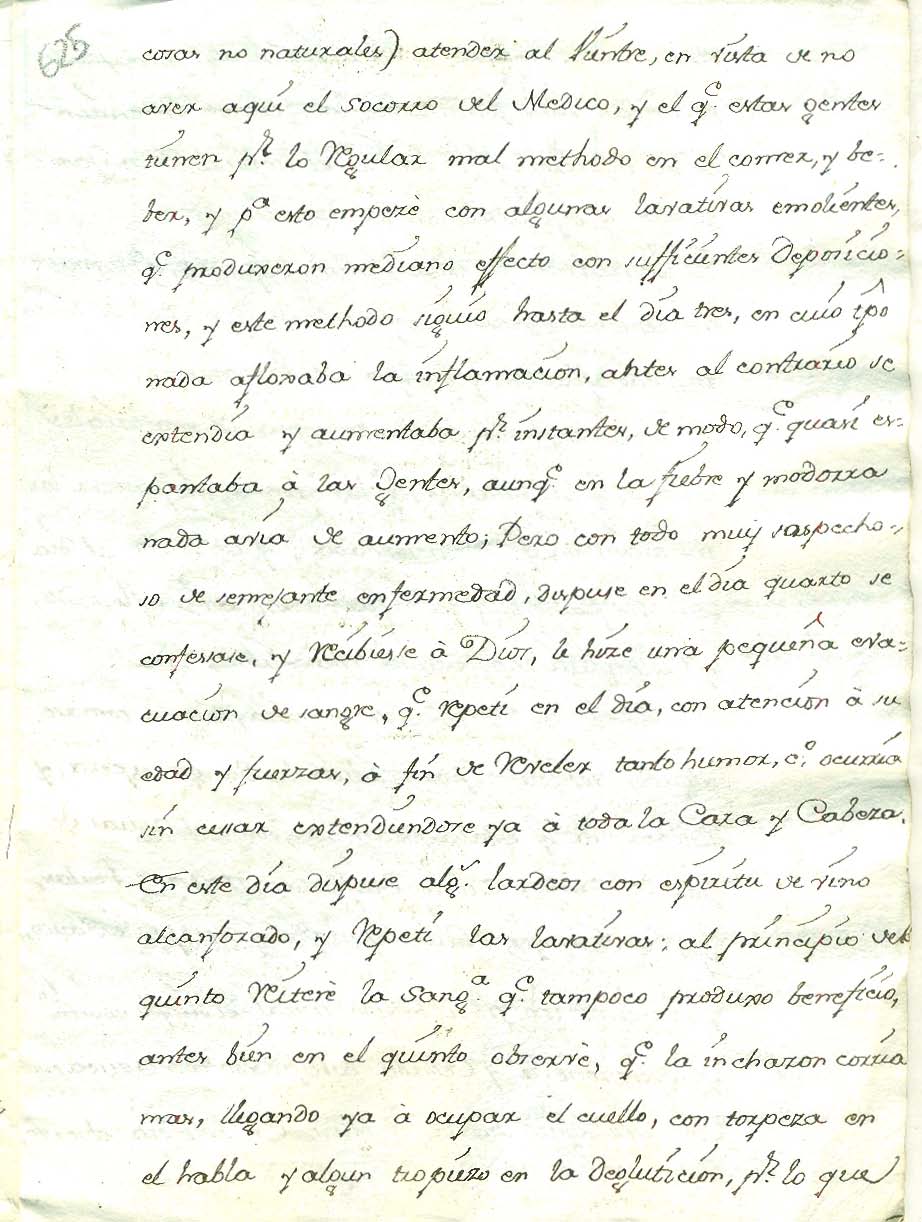 625
cosas no naturales) atender al Vientre, en vista de no
aver aqui el socorro del Medico, y el q.e estas gentes
tienen p.r lo Regular mal methodo en el comer, y be=
ber, y p.a esto empezè con algunas lavativas emolientes,
q.e produxeron mediano effecto con sufficientes Deposicio=
nes, y este methodo siguio hasta el dia tres, en cuio tpo
nada afloxaba la inflamacion, antes al contrario se
extendia y aumentaba p.r instantes, de modo, q.e quasi es=
pantaba à las Gentes, aunq.e en la fiebre y modorra
nada avia de aumento; Pero con todo muy sospecho=
so de semejante enfermedad, dispuse en el dia quarto se
confesase, y Recibiese à Dios, le hize una pequeña eva=
cuacion de sangre, q.e Repeti en el dia, con atencion à su
edad y fuerzas, à fin de Reveler tanto humor, c.o ocurria
sin cesar extendiendose ya à toda la Cara y Cabeza.
En este dia dispuse alg.s lardeos con espiritu de vino
alcanforado, y Repeti las lavativas; al principio del
quinto Reiterè la Sang.a q.e tampoco produxo beneficio,
antes bien en el quinto observè, q.e la inchazon corria
mas, llegando ya à ocupar el cuello, con torpeza en
el habla y algun tropiezo en la Deglutición, p.r lo que